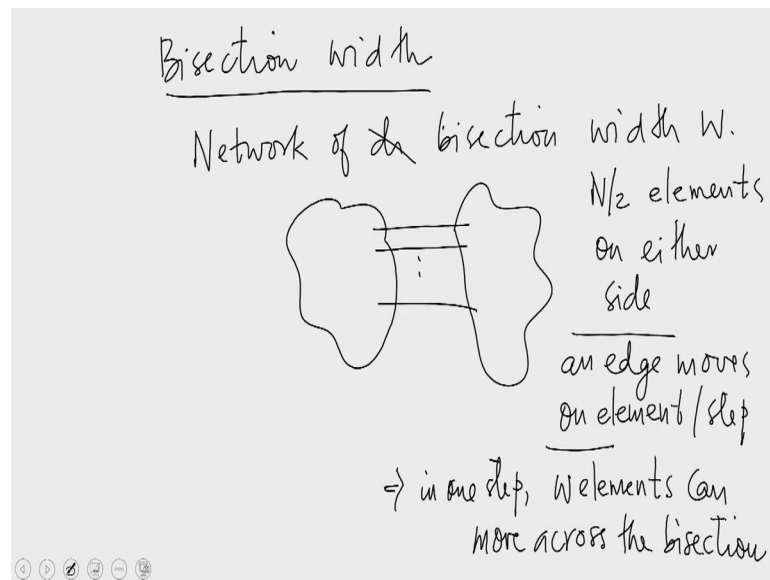 Bisection width
Network of bisection width W.
N/2 elements
on either
side
an edge moves
on element/step
⇒ in one step, W elements can
move across the bisection